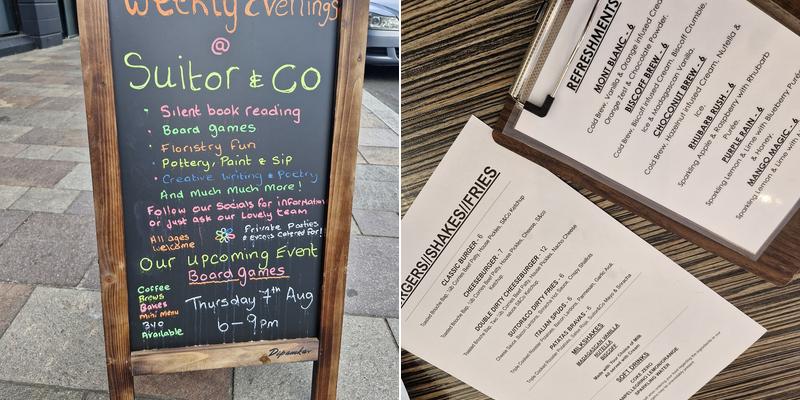 Weekly Evenings
@
Suitor & Co
Silent book reading
Board games
Floristry fun
Pottery, Paint & Sip
Creative Writing & Poetry
And Much much More!
Follow our Socials for information
or just ask our Lovely team
All ages
welcome
Private Parties
& events Catered for!
Our upcoming Event
Board games
Coffee
Brews
Bakes
mini menu
Available
Thursday 7th Aug
6-9pm
REFRESHMENTS
MONT BLANC - 6
Cold Brew, Vanilla & Orange infused Cream,
Orange Zest & Chocolate Powder.
BISCOFF BREW - 6
Cold Brew, Biscoff infused Cream, Biscoff Crumble,
Ice & Madagascan Vanilla.
CHOCONUT BREW - 6
Cold Brew, Hazelnut infused Cream, Nutella &
Ice.
RHUBARB RUSH - 6
Sparkling Apple & Raspberry with Rhubarb
Purée.
PURPLE RAIN - 6
Sparkling Lemon & Lime with Blueberry Purée
& Honey.
MANGO MAGIC - 6
Sparkling Lemon & Lime with
BURGERS//SHAKES//FRIES
CLASSIC BURGER - 6
CHEESEBURGER - 7
DOUBLE DIRTY CHEESEBURGER - 12
SUITOR&CO DIRTY FRIES - 6
ITALIAN SPUDS - 6
PATATAS BRAVAS - 6
MILKSHAKES
MADAGASCAN VANILLA
NUTELLA
BISCOFF
Made with Your Choice of Milk
All served with Cream
SOFT DRINKS
COKE ZERO
SAN PELLEGRINO LEMON/ORANGE
SPARKLING WATER